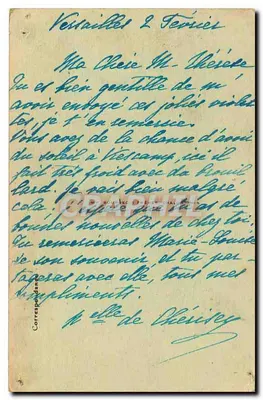 Versailles 2 Février
Ma Chère M-Thérèse
Tu es bien gentille de m'
avoir envoyé ces jolies violet-
tes, je t'en remercie.
Vous avez de la chance d'avoir
du soleil à Viescamp, ici il
fait très froid avec du brouil
lard. Je vais bien malgré
cela
bonnes nouvelles de chez toi.
Tu remercieras Marie-Louise
de son souvenir, et tu par-
tageras avec elle, tous mes
compliments.
Melle de Chérisey
CRAPHIL
Correspondance